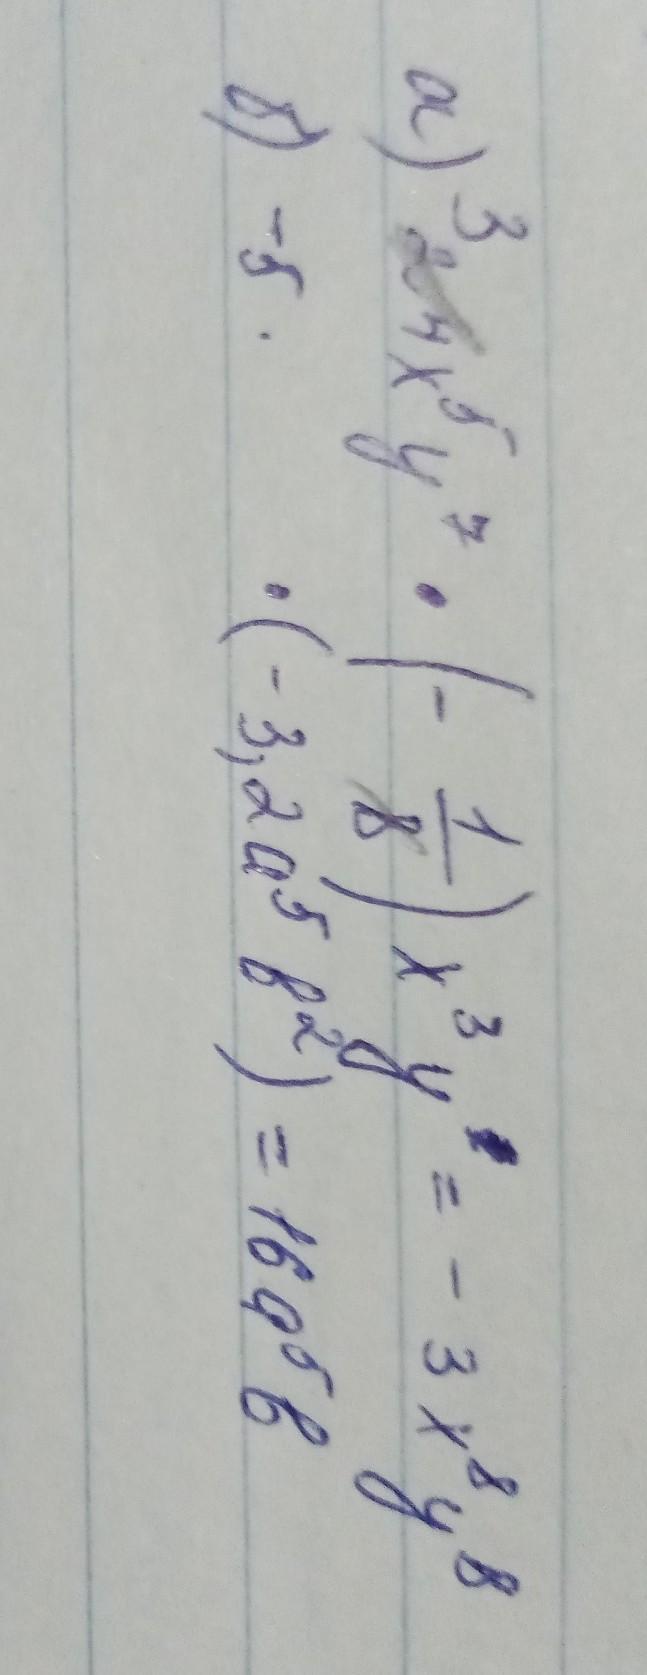 а) 3 24x⁵y⁷ · (- 1/8) x³y = - 3x⁸y⁸
б) -5 · · (-3,2a⁵b²) = 16a⁵b